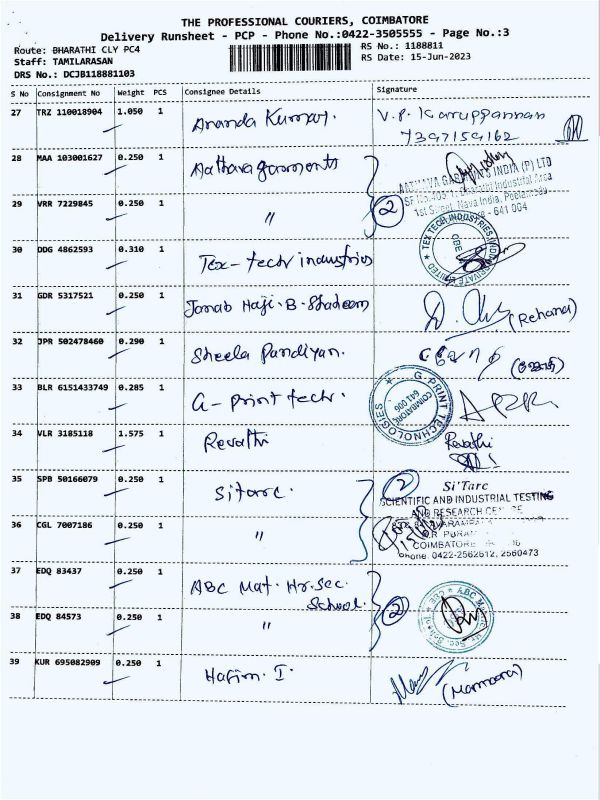 THE PROFESSIONAL COURIERS, COIMBATORE
Delivery Runsheet - PCP - Phone No.:0422-3505555 - Page No.:3
Route: BHARATHI CLY PC4
RS No.: 1188811
Staff: TAMILARASAN
RS Date: 15-Jun-2023
DRS No.: DCJB118881103
S No Consignment No Weight PCS Consignee Details Signature
27 TRZ 110018904 1.050 1 Ananda Kumar. V.P. Karuppannan
7397159162
28 MAA 103001627 0.250 1 Aathava garments
AATHAVA GARMENTS INDIA (P) LTD
Bharathi Industrial Area
1st Street, Nava India, Peelamedu
641 004
29 VRR 7229845 0.250 1 " 2
30 DDG 4862593 0.310 1 Tex-tech industries
TEX TECH INDUSTRIES INDIA PRIVATE LIMITED
CBE
31 GDR 5317521 0.250 1 Janab Haji. B. Shadeem (Rehana)
32 JPR 502478460 0.290 1 Sheela Pandiyan.
33 BLR 6151433749 0.285 1 G-Print tech.
G PRINT TECHNOLOGIES
COIMBATORE
641 006
34 VLR 3185118 1.575 1 Revathi Revathi
35 SPB 50166079 0.250 1 Sitarc. 2
Si'Tarc
SCIENTIFIC AND INDUSTRIAL TESTING
AND RESEARCH CENTRE
36 CGL 7007186 0.250 1 "
COIMBATORE
Phone. 0422-2562612, 2560473
37 EDQ 83437 0.250 1 ABC Mat. Hr. Sec.
School.
38 EDQ 84573 0.250 1 " 2
39 KUR 695082909 0.250 1 Hafim. I.